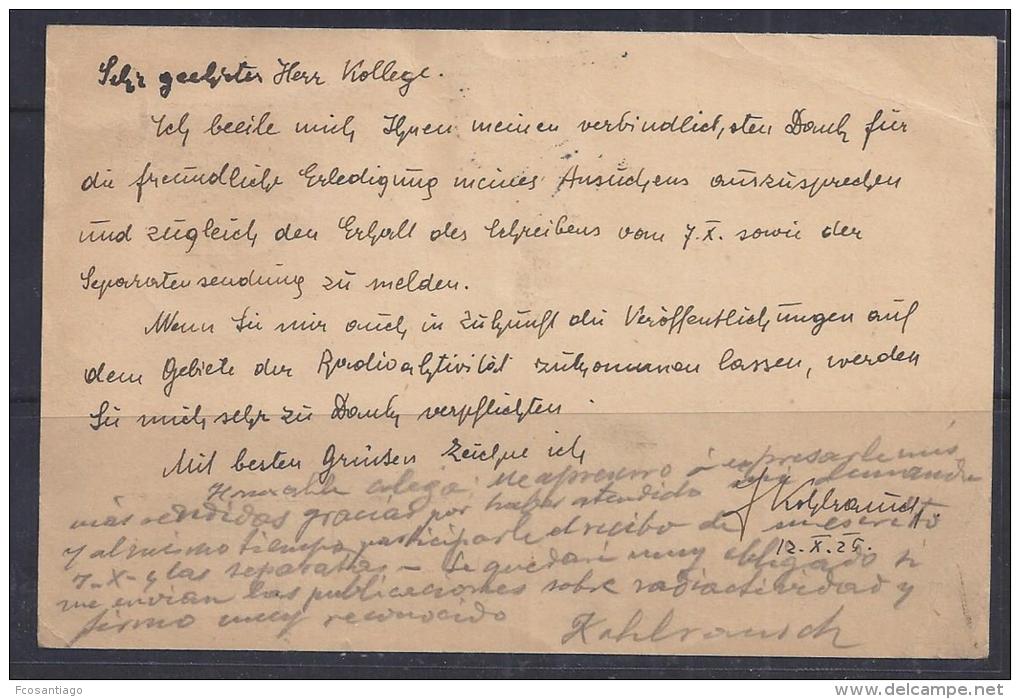 Sehr geehrter Herr Kollege.
Ich beeile mich Ihnen meinen verbindlichsten Dank für
die freundliche Erledigung meines Ansuchens auszusprechen
und zugleich den Erhalt des Schreibens vom 7.X. sowie der
Separatensendung zu melden.
Wenn Sie mir auch in Zukunft die Veröffentlichungen auf
dem Gebiete der Radioaktivität zukommen lassen, werden
Sie mich sehr zu Dank verpflichten.
Mit besten Grüssen zeichne ich
Kohlrausch
12.X.25.
Honorable colega: Me apresuro á expresarle mis
más rendidas gracias por haber atendido mi demanda
y al mismo tiempo participarle el recibo de su escrito
7-X- y las separatas - Le quedaré muy obligado si
me envian las publicaciones sobre radiactividad y
firmo muy reconocido
Kohlrausch
Fcosantiago
www.delcampe.net